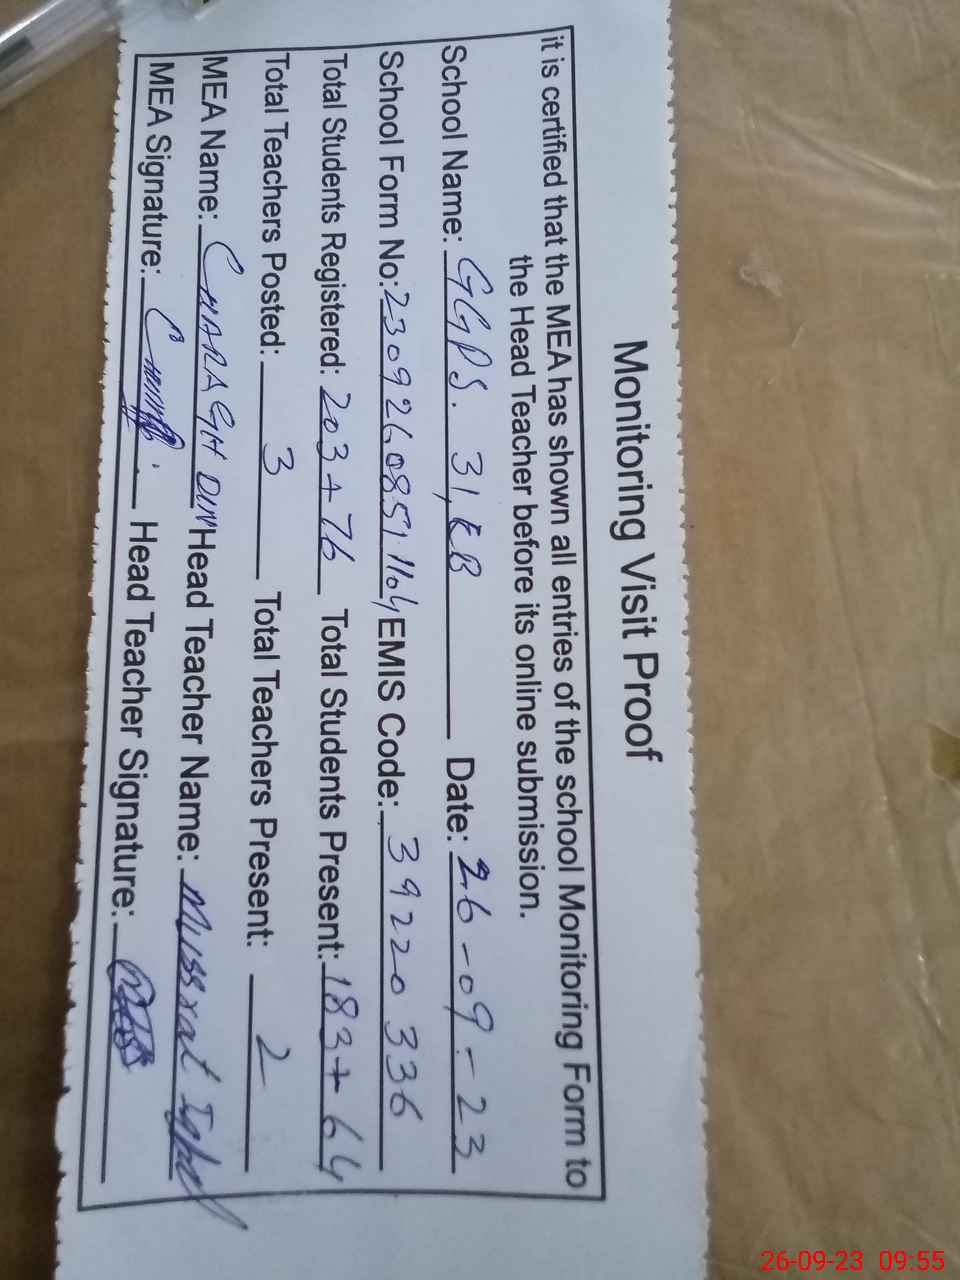 Monitoring Visit Proof
it is certified that the MEA has shown all entries of the school Monitoring Form to
the Head Teacher before its online submission.
School Name: GGPS. 31, KB Date: 26-09-23
School Form No: 23092608511104 EMIS Code: 39220336
Total Students Registered: 203+76 Total Students Present: 183+64
Total Teachers Posted: 3 Total Teachers Present: 2
MEA Name: CHARAGH DIN Head Teacher Name: Mussrat Iqbal
MEA Signature: Head Teacher Signature:
26-09-23 09:55